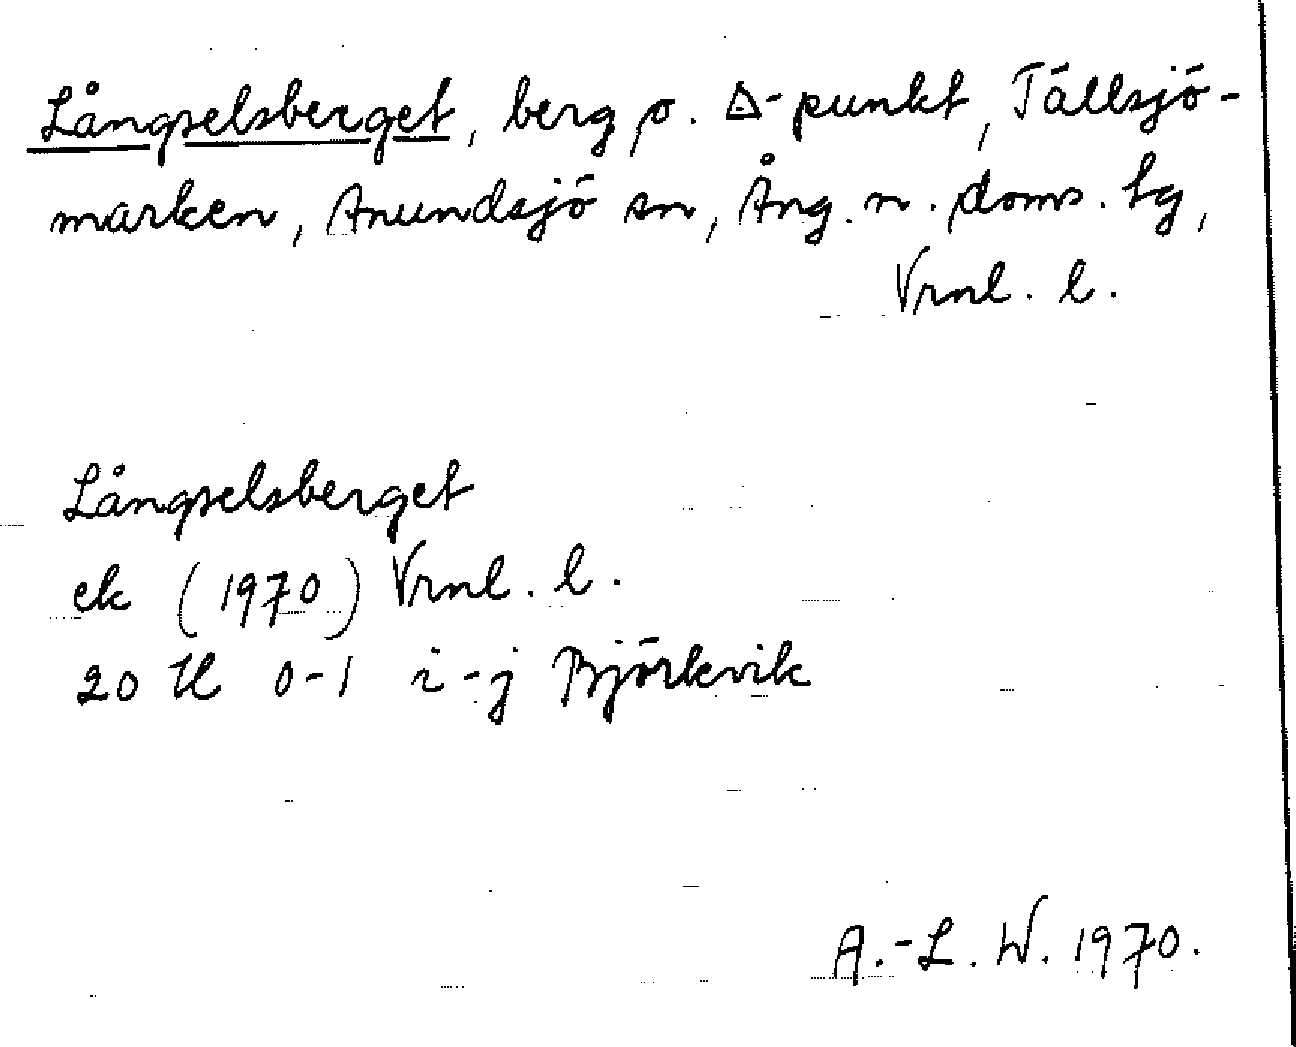 Långselsberget, berg o. Δ-punkt, Tällsjö-
marken, Anundsjö sn, Ång. n. doms. tg,
Vrnl. l.
Långselsberget
ek (1970) Vrnl. l.
20 H 0-1 i-j Björkvik
A.-L. W. 1970.